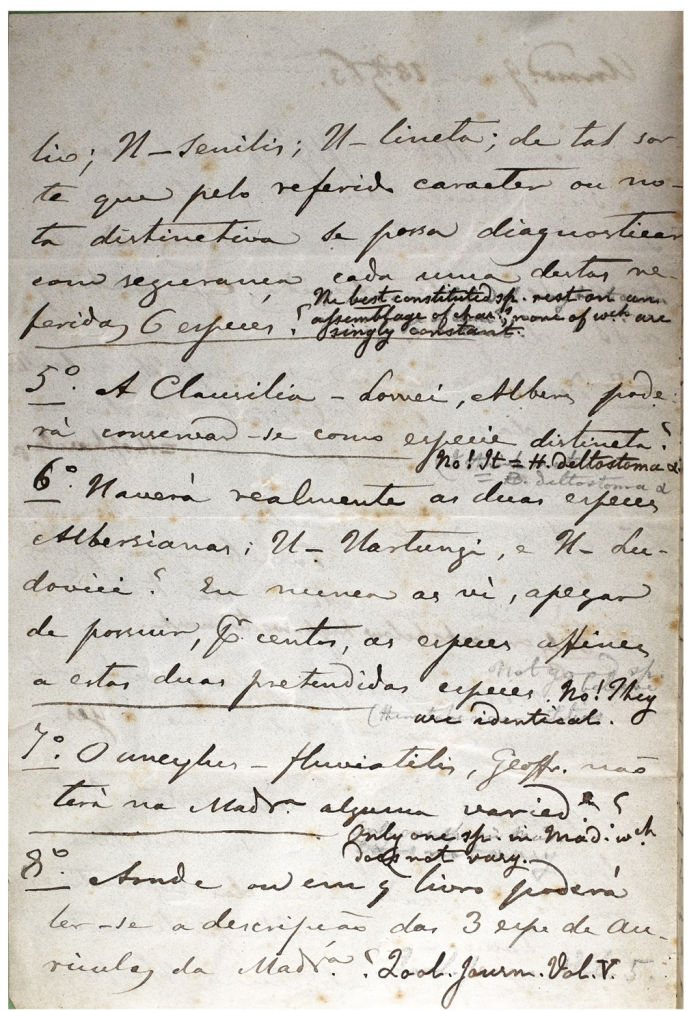 lio; H_ senilis; H_ lineta; de tal sor-
te que pelo referido caracter ou no-
ta distinctiva se possa diagnosticar
com segurança cada uma destas re-
feridas 6 especies?
The best constituted sp. rest on an
assemblage of char.s, none of wch. are
singly constant.
5º. A Clausilia - Lowei, Albers, pode-
rá conservar-se como especie distincta?
No! It = H. deltostoma α.
= B. deltostoma α
6º. Haverá realmente as duas especies
Albersianas; H_ Hartungi, e H_ Lu-
dovici? Eu nunca as vi, apezar
de possuir, centos, as especies affines
a estas duas pretendidas especies.
Not good sp
No! They
are identical.
7º. O ancylus - fluviatilis, Geoffr. não
terá na Madr.a alguma varied.e?
Only one sp. in Mad. wch
does not vary.
8º. Aonde ou em q livro poderá
ler-se a descripção das 3 espe de au-
riculas da Madr.a? Zool. Journ. Vol. V. 5.